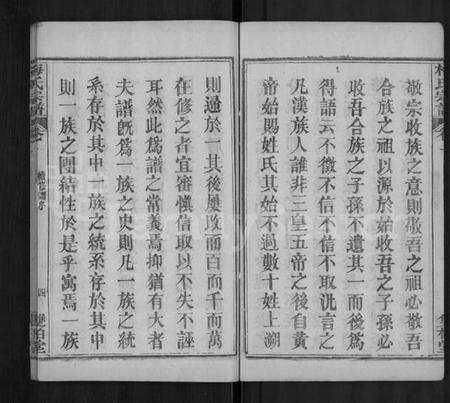 敬宗收族之意則敬吾之祖必敬吾
合族之祖以源於始收吾之子孫必
收吾合族之子孫不遺其一而後爲
得語云不徵不信不信不取沉言之
凡漢族人誰非三皇五帝之後自黃
帝始賜姓氏其始不過數十姓上溯
則過於一其後屢改而百而千而萬
在修之者宜審愼信取以不失不誣
耳然此爲譜之常義焉抑猶有大者
夫譜旣爲一族之史則凡一族之統
系存於其中一族之統系存於其中
則一族之團結性於是乎寓焉一族
梅氏宗譜
四